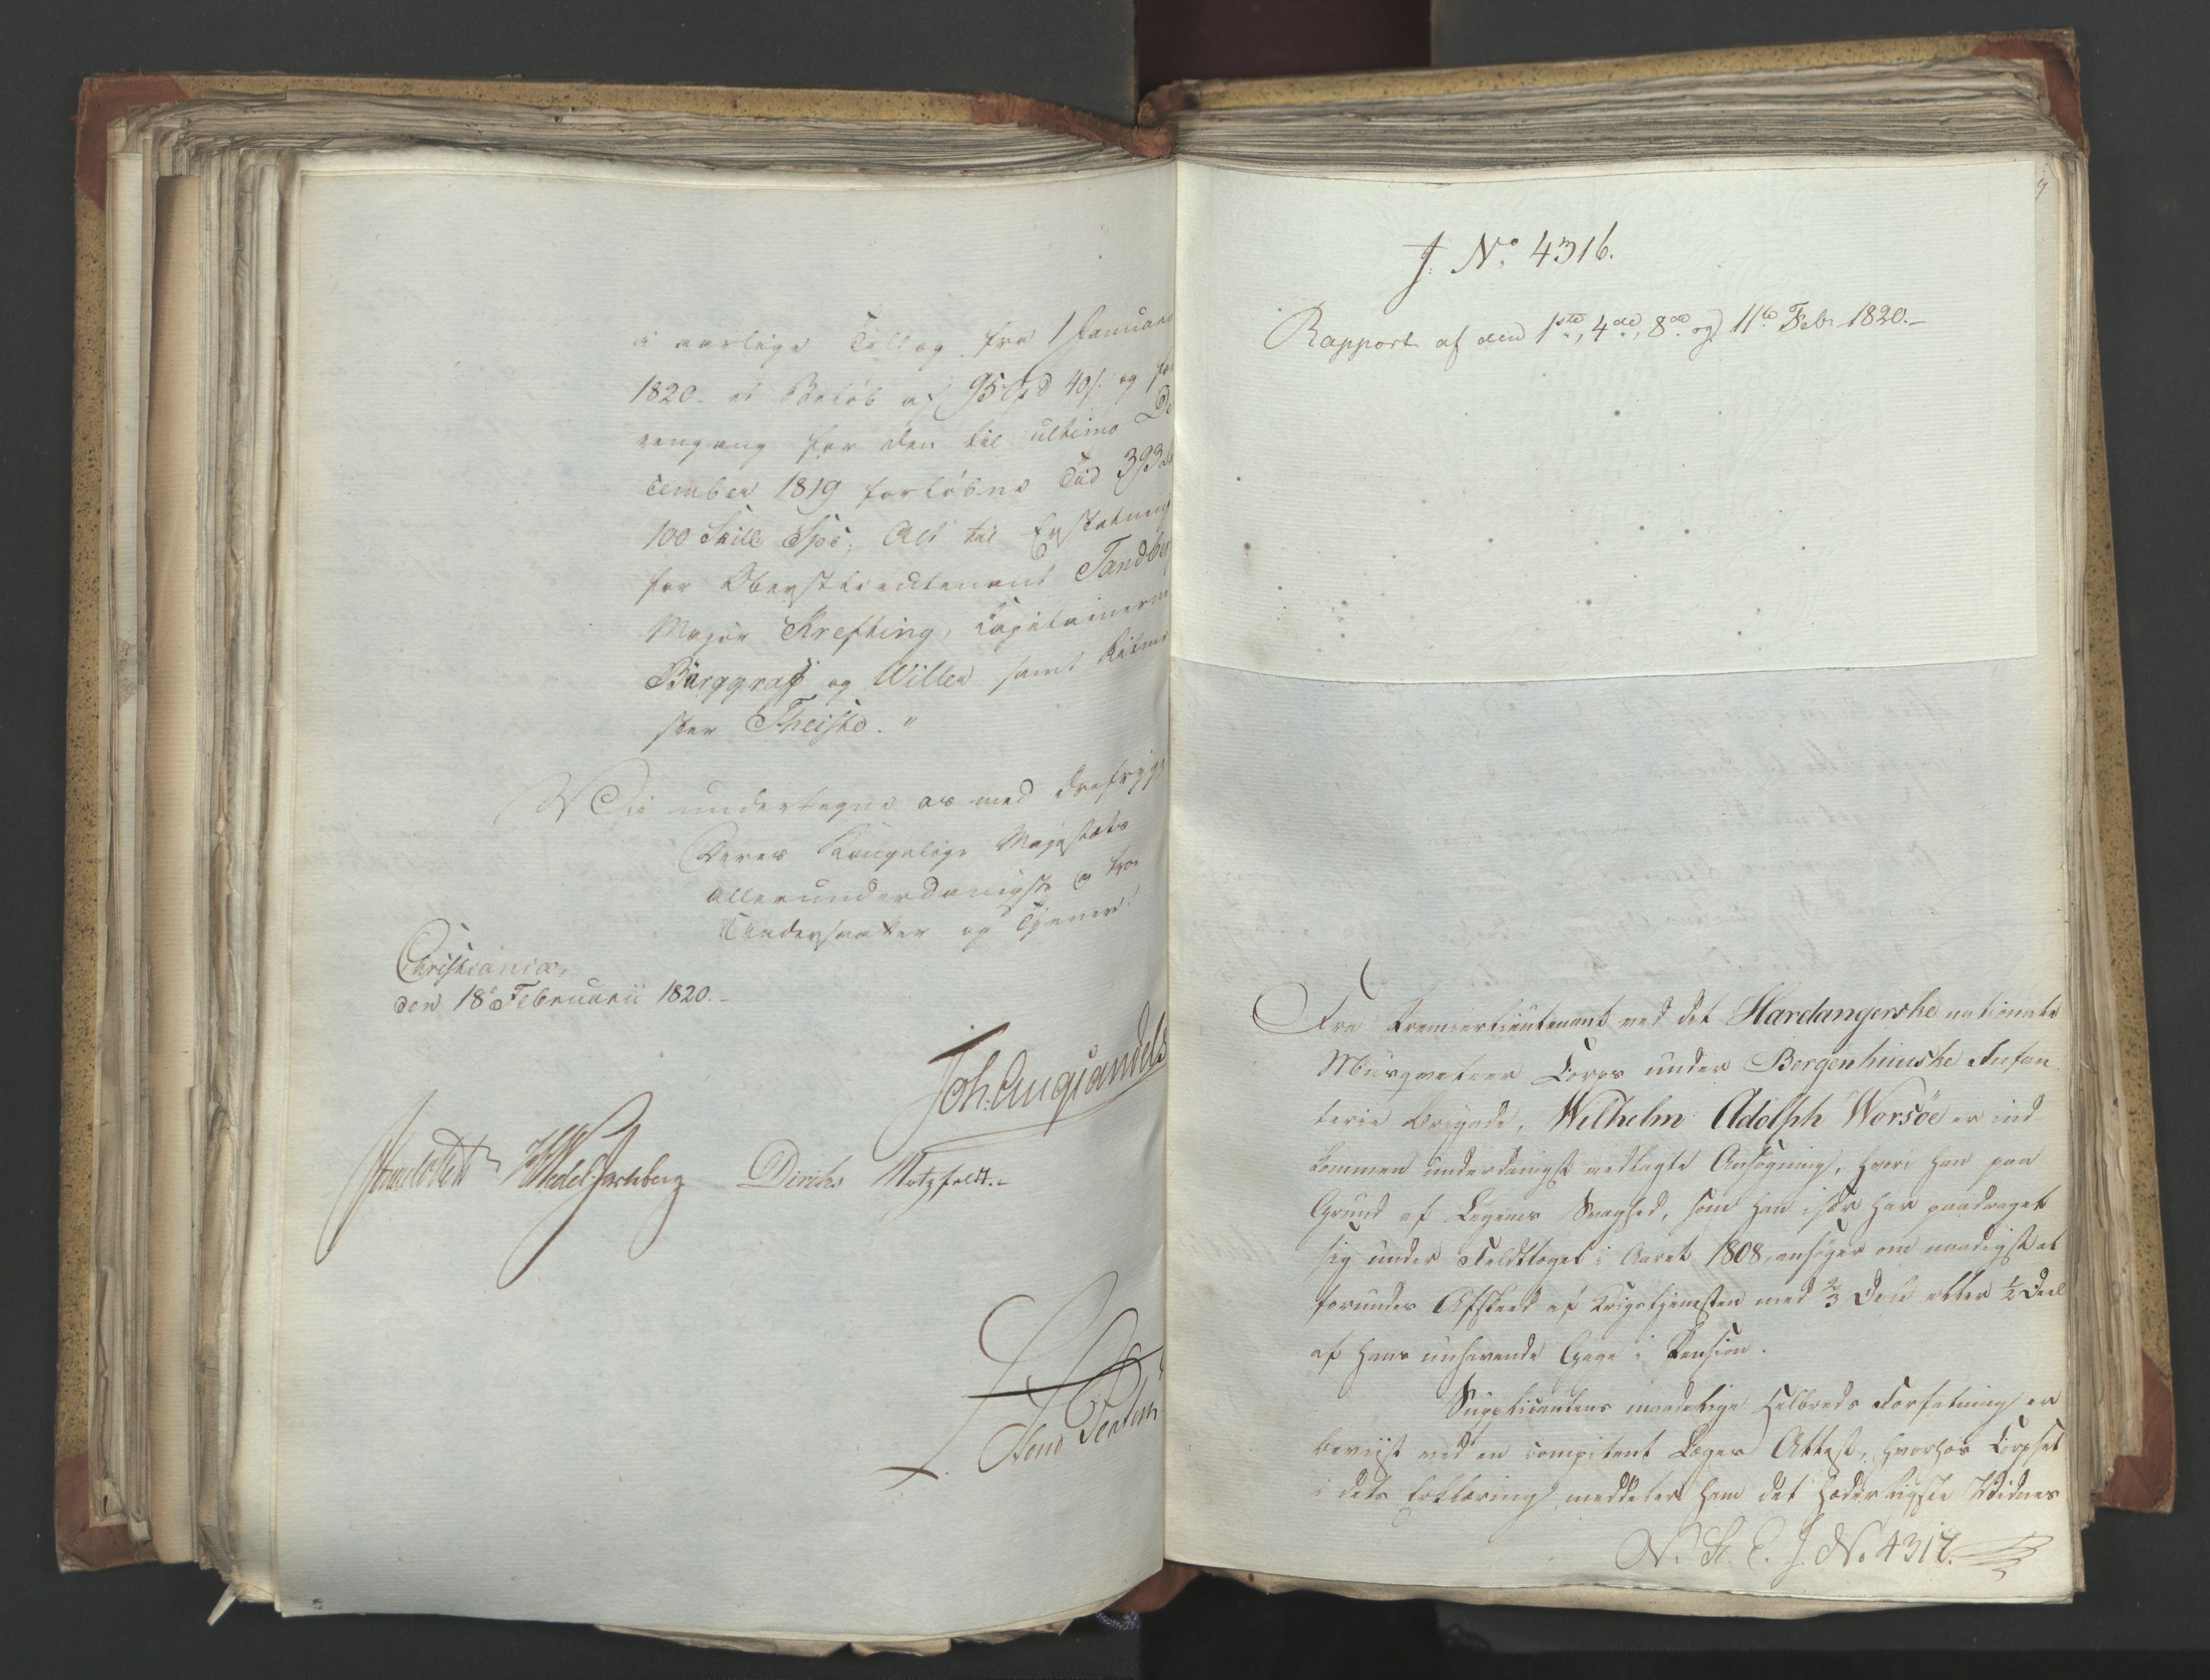 i aarlige Tillæg fra 1 Januar
1820 et Beløb af 95 Spd 40 s. og for
rengang for den til ultimo De
cember 1819 forløbne Tid 393
100 Skill Spc; Alt til Erstatning
for Oberstlieutenant Tandberg
Major Krefting, Capitainerne
Burggraff og Wille samt Ritme
ster Theiste."
Vi undertegne os med Ærefrygt
Deres Kongelige Majestæts
allerunderdanigste og troe
Undersaatter og Tjenere.
Christiania,
den 18de Februarii 1820.
Joh. Aug. Sandels
Sommerhielm H Wedel Jarlsberg Diriks Motzfeldt.
J. No. 4316.
Rapport af den 1ste, 4de, 8de og 11te Febr 1820.
Fra Premierlieutenant ved det Hardangerske nationale
Musqueteer Corps under Bergenhuuske Infan
terie Brigade, Wilhelm Adolph Worsöe er ind
kommen underdanigst vedlagte Ansøgning, hvori han paa
Grund af Legems Svaghed, som han især har paadraget
sig under Feldttoget i Aaret 1808, ansøger om naadigst at
forundes Afskeed af Krigstjenesten med 2/3 Dele eller 1/2 Deel
af hans nuhavende Gage i Pension.
Supplicantens maadelige Helbreds Forfatning er
beviist ved en competent Læges Attest, hvorhos Corpset
i dets Erklæring meddeler ham det hæderligste Vidnes
N. St. E. J. No. 4317.